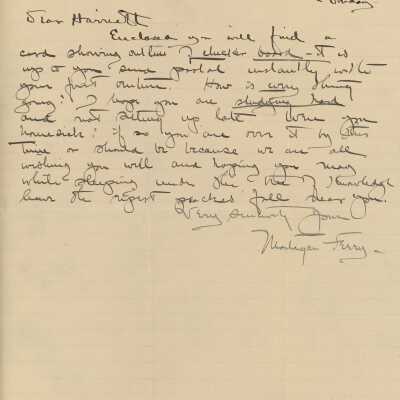 Sunday
Dear Harriett
Enclosed you will find a
card showing outline of checker board - it is
up to you send postal instantly with
your first outline. How is every thing
going? I hope you are studying hard
and not sitting up late. Were you
homesick? if so you are over it by this
time or should be because we are all
wishing you well and hoping you may
while sleeping under the tree of Knowledge
have the ripest peaches fall near you.
Very sincerely yours
Ferry -